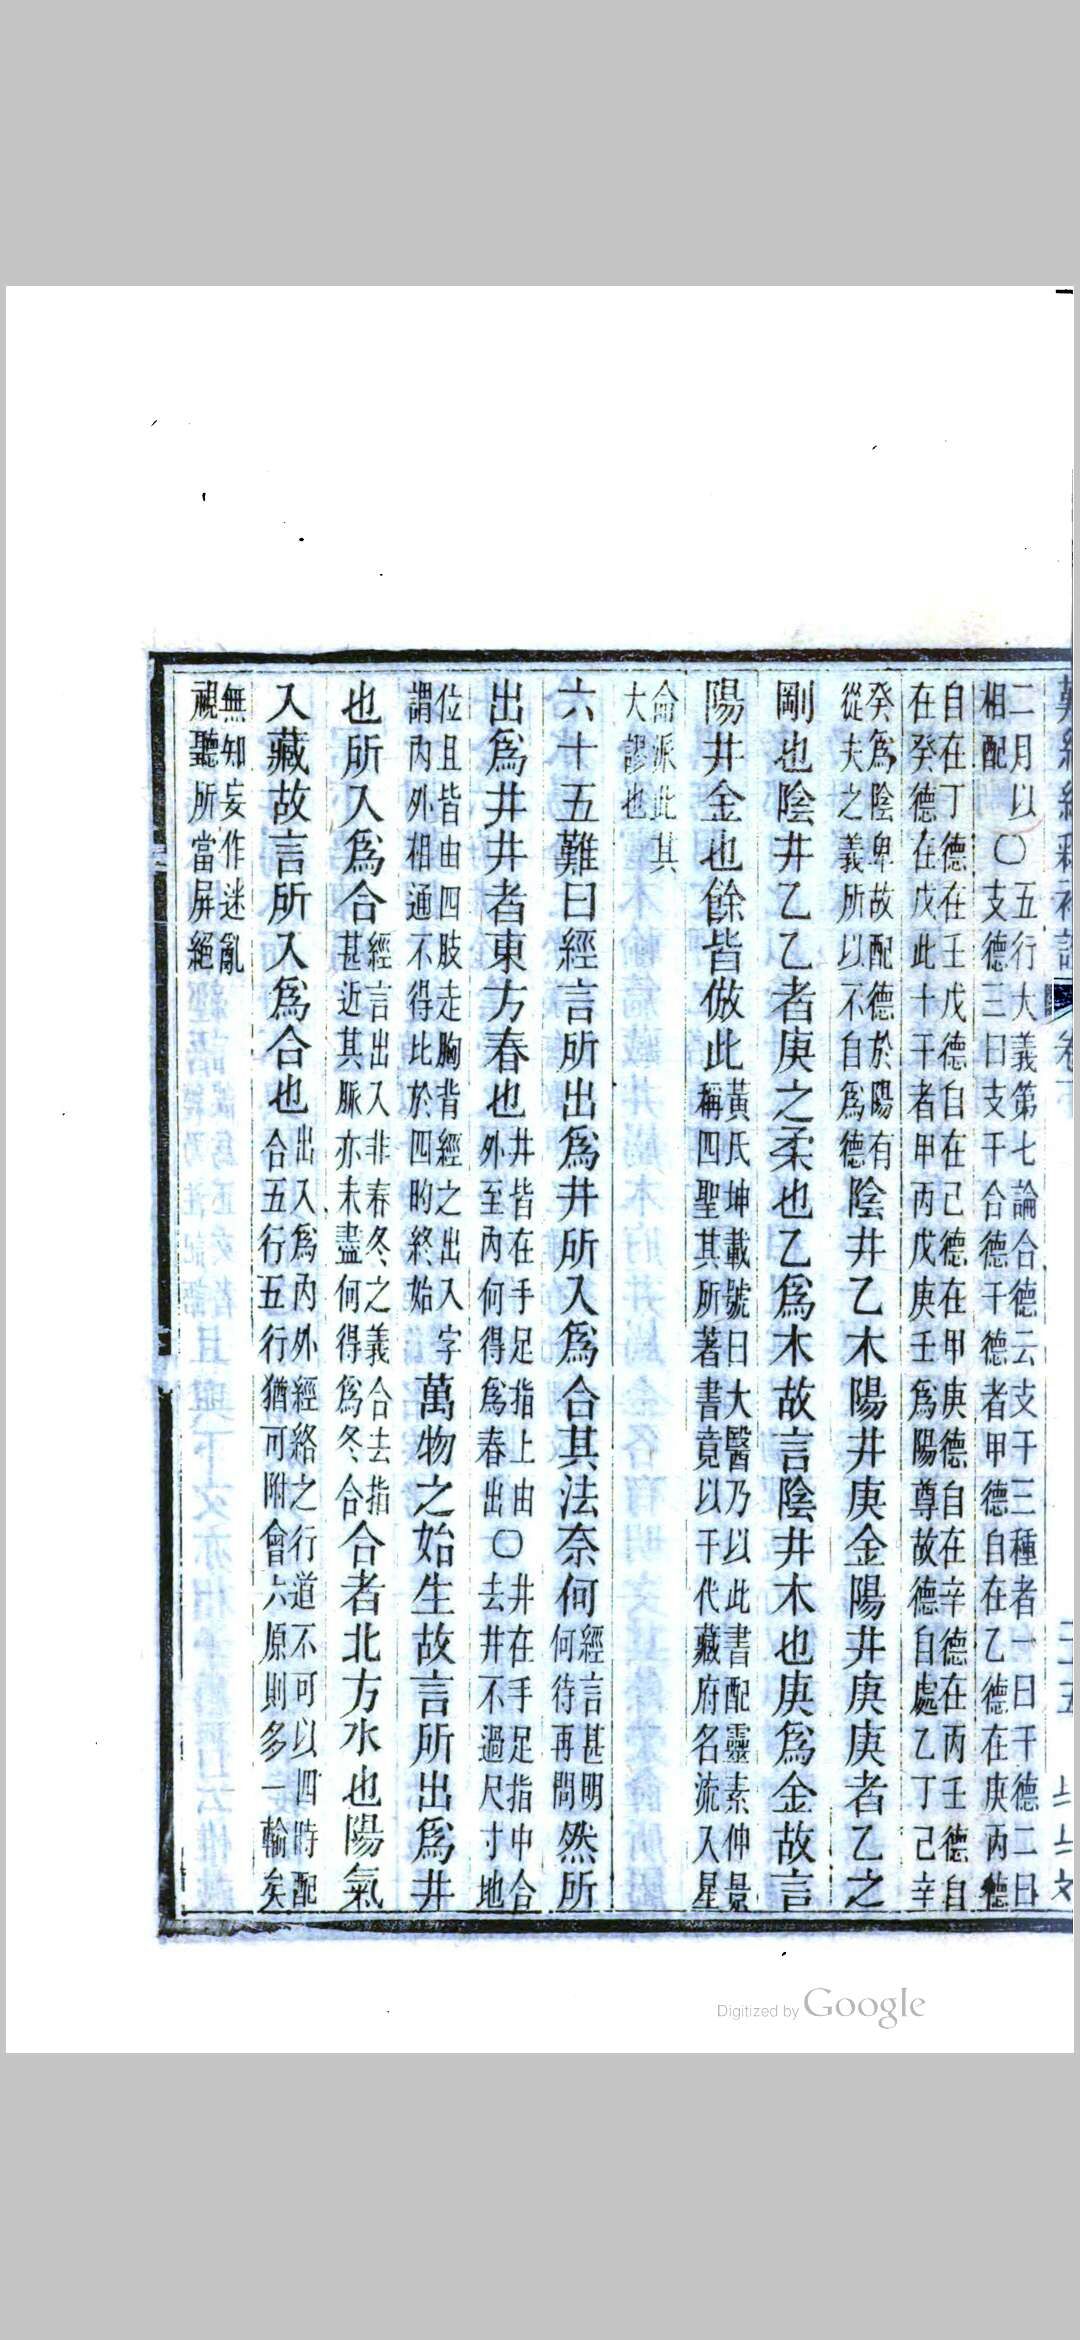 二月以相配○五行大義第七論合德云支干三種者一曰干德二曰支德三曰支干合德干德者甲德自在乙德在庚丙德
自在丁德在壬戊德自在己德在甲庚德自在辛德在丙壬德自在癸德在戊此十干者甲丙戊庚壬爲陽尊故德自處乙丁己辛
癸爲陰卑故配德於陽有從夫之義所以不自爲德陰井乙木陽井庚金陽井庚庚者乙之
剛也陰井乙乙者庚之柔也乙爲木故言陰井木也庚爲金故言
陽井金也餘皆倣此黃氏坤載號曰大醫乃以此書配靈素仲景稱四聖其所著書竟以干代藏府名流入星
命派此其大謬也
六十五難曰經言所出爲井所入爲合其法奈何經言甚明何待再問然所
出爲井井者東方春也井皆在手足指上由外至內何得爲春出○井在手足指中合去井不過尺寸地
位且皆由四肢走胸背經之出入字謂內外相通不得比於四時終始萬物之始生故言所出爲井
也所入爲合經言出入非春冬之義合去指甚近其脈亦未盡何得爲冬合合者北方水也陽氣
入藏故言所入爲合也出入爲內外經絡之行道不可以四時配合五行五行猶可附會六原則多一輸矣
無知妄作迷亂視聽所當屏絕
Digitized by Google